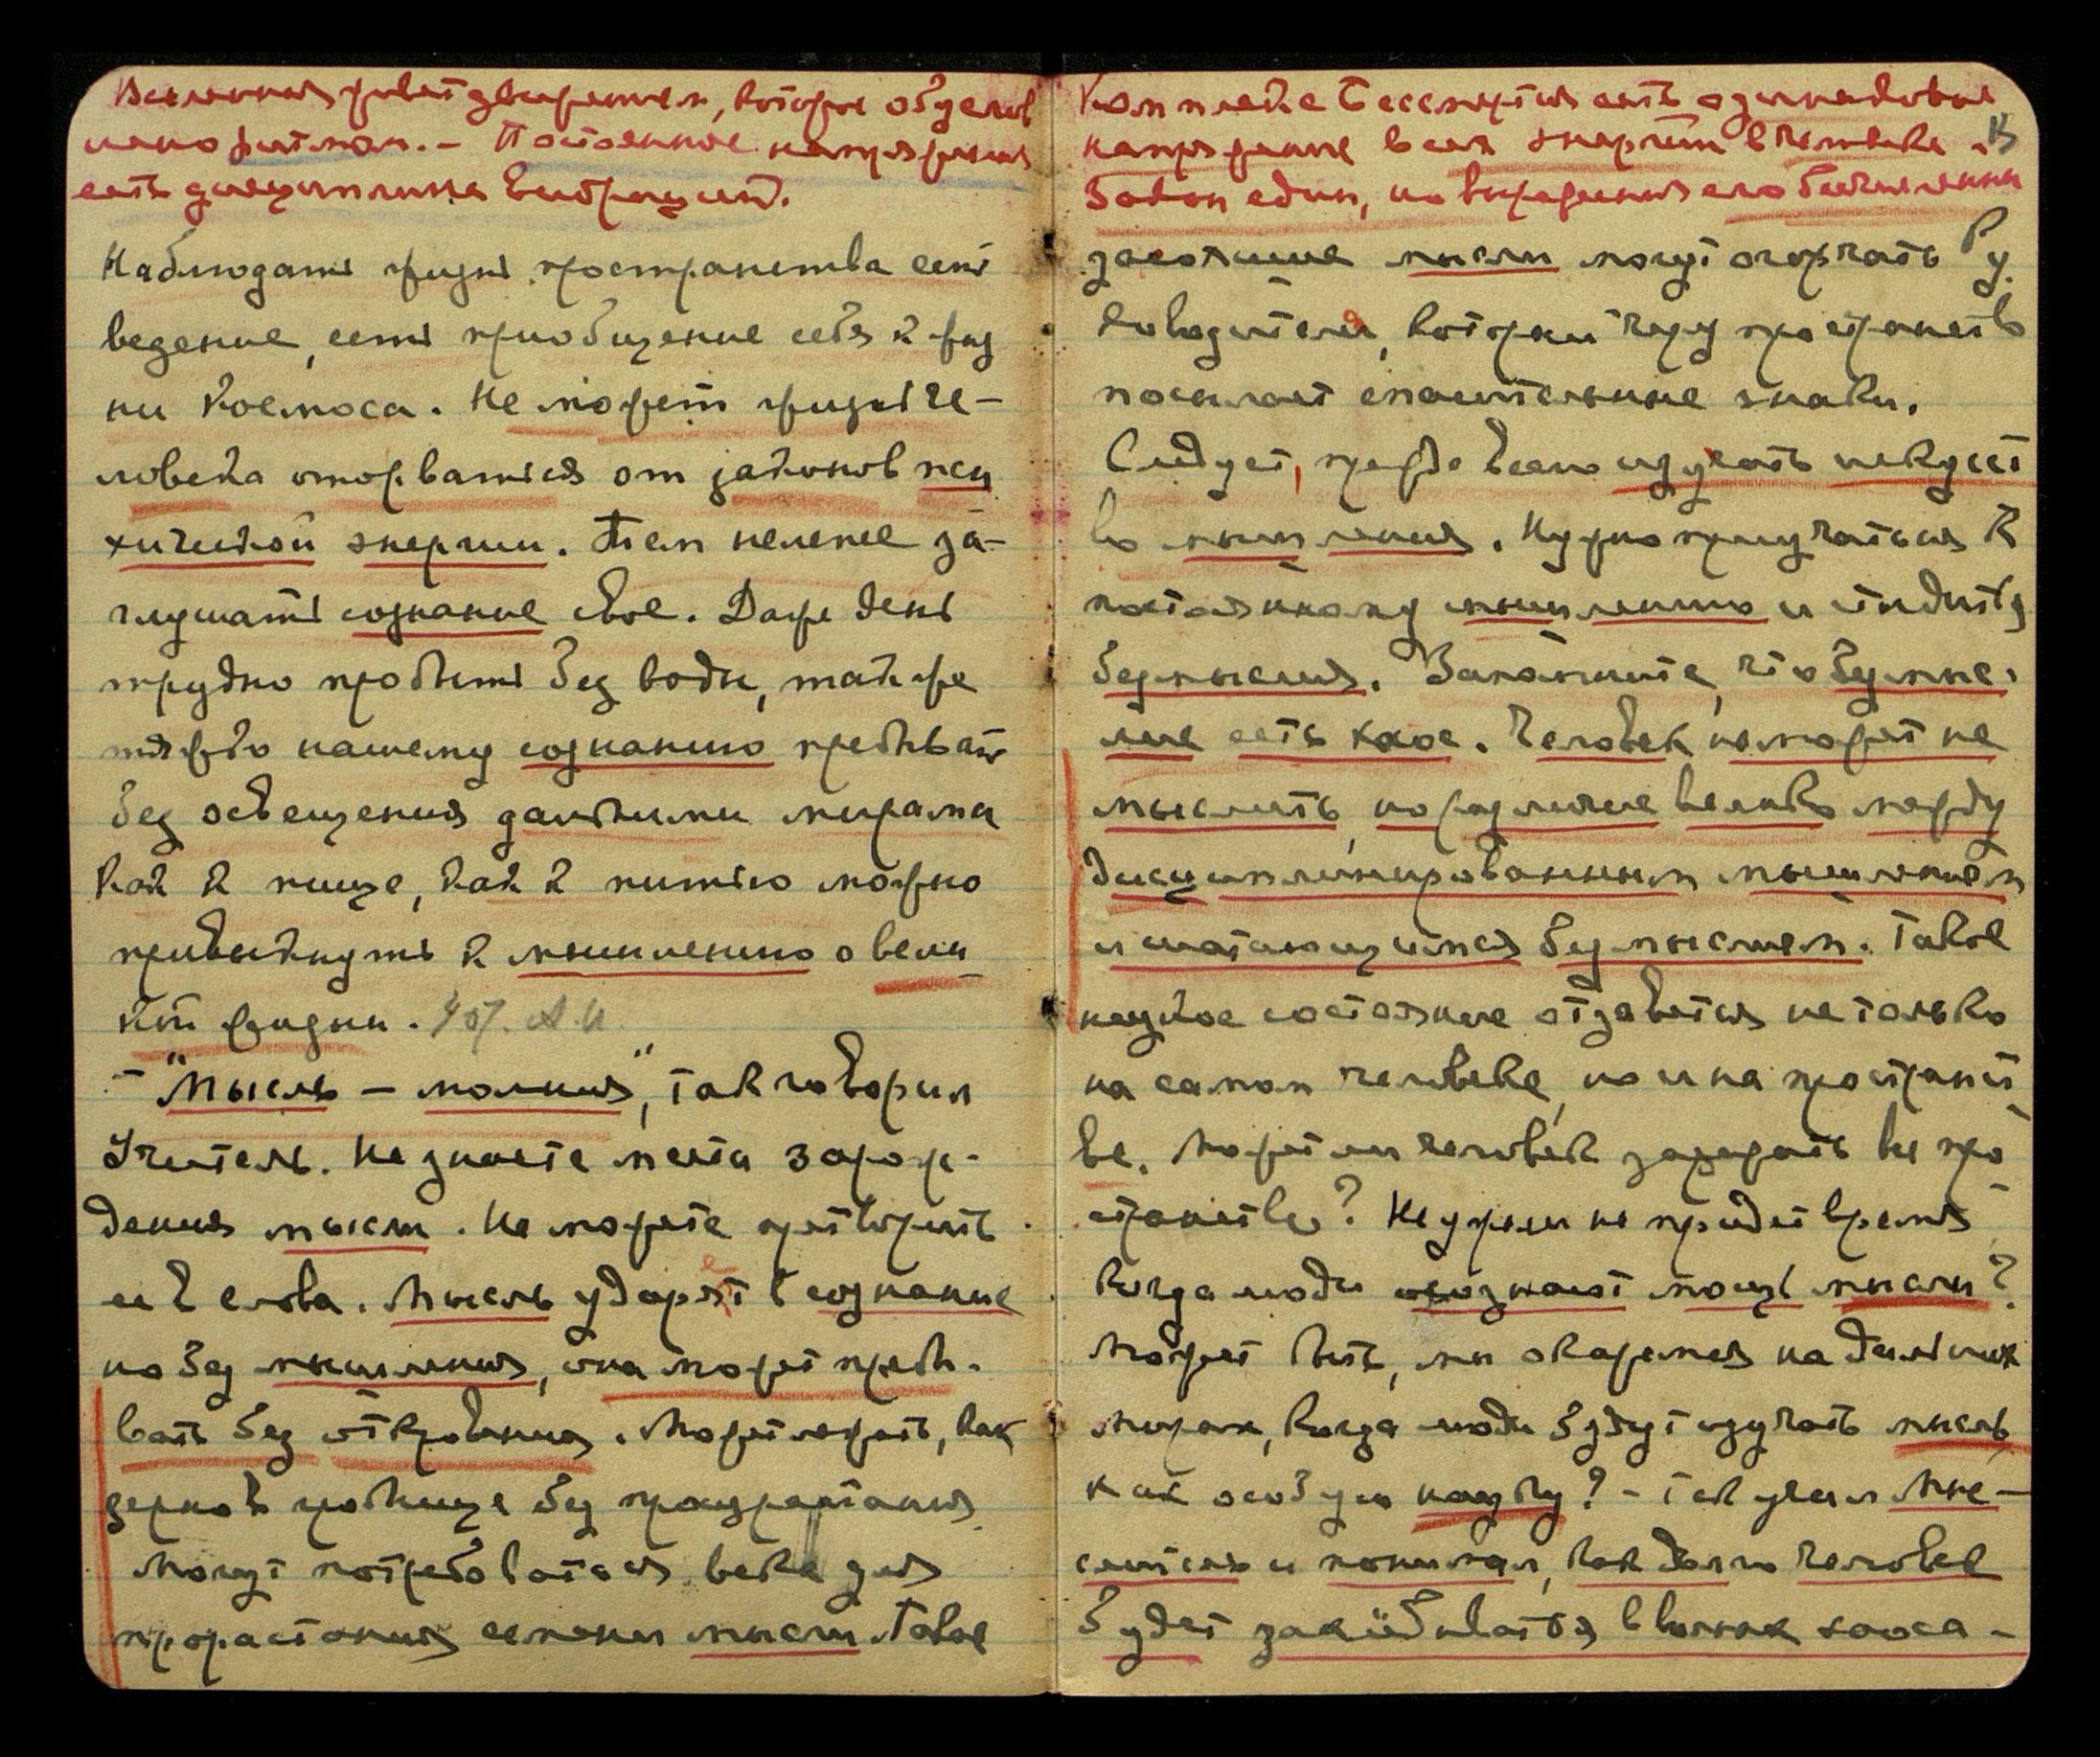 Вселенная живет движением, которое обуслов
лено ритмом. – Постоянное напряжение
есть дисциплина вибраций.
Наблюдать жизнь пространства есть
ведение, есть приобщение себя к жиз
ни Космоса. Не может жизнь че-
ловека оторваться от законов пси
хической энергии. Тем нелепее за-
глушать сознание свое. Даже день
трудно пробыть без воды, также
тяжко нашему сознанию пребывать
без освещения дальними мирами
Как к пище, как к питью можно
привыкнуть к мышлению о вели
кой жизни. 407. А.Й.
– "Мысль – молния", так говорил
Учитель. Не знаете места зарож-
дения мысли. Не можете претворить
её в слова. Мысль ударяет в сознание
но без мышления, она может пребы-
вать без откровения. Может лежать, как
зерно в гробнице без произрастания
Могут потребоваться века для
прорастания семени мысли. Такое
Комплекс Бессмертия есть одинаковое
напряжение всех энергий в человеке. – В
Закон един, но выражения его бесчисленны
засохшие мысли могут огорчать Ру
ководителя, который через пространство
посылает спасительные знаки.
Следует, прежде всего изучать искусст
во мышления. Нужно приучаться к
постоянному мышлению и стыдиться
безмыслия. Запомните, что безмыс-
лие есть хаос. Человек не может не
мыслить, но различие велико между
дисциплинированным мышлением
и шатающимся безмыслием. Такое
низкое состояние отзовется не только
на самом человеке, но и на пространст
ве. Может ли человек заражать все про
странство? Неужели не придет время
когда люди осознают мощь мысли?
Может быть, мы окажемся на дальних
мирах, когда люди будут изучать мысль
как особую науку? – Так учил Мы-
слитель и понимал, как долго человек
будет захлёбываться в волнах хаоса –